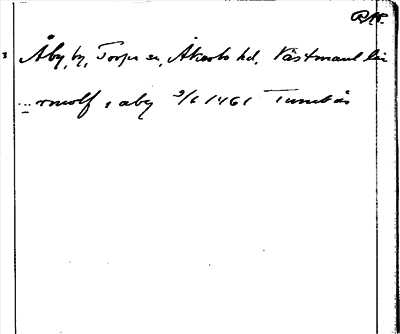 Åby, by, Torpa sn, Åkerbo hd, Västmanl län
...rmolf i aby 3/6 1461 Tunabäs